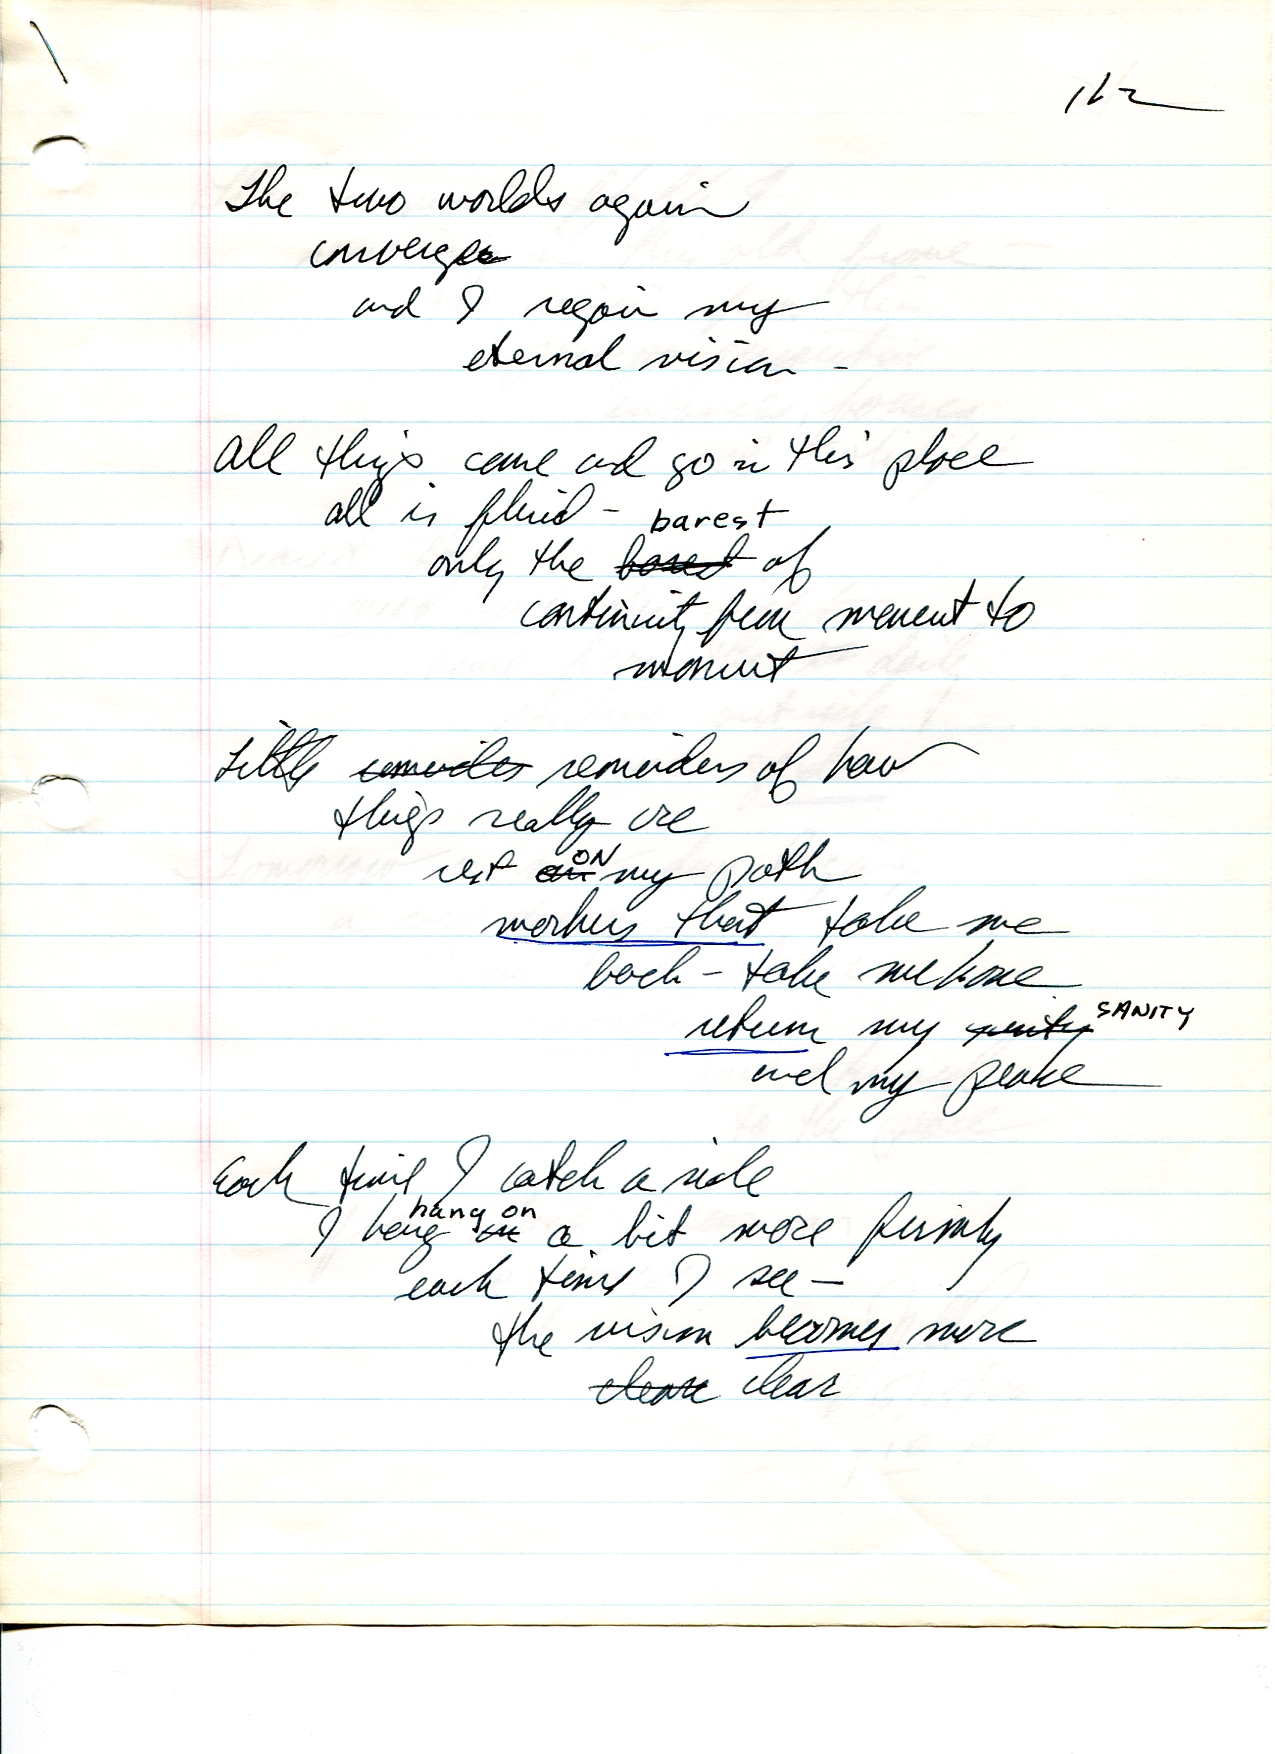 162
The two worlds again
converge
and I regain my
eternal vision -
All things come and go in this place
all is fluid - barest
only the barest of
continuity from moment to
moment
Little reminders of how
things really are
rest on ON my path
markers that take me
back - take me home
return my sanity SANITY
and my peace
Each time I catch a ride
hang on
I hang on a bit more firmly
each time I see -
the vision becomes more
clear